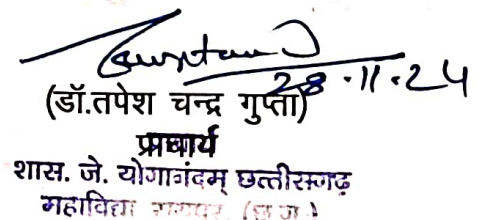 28.11.24
(डॉ.तपेश चन्द्र गुप्ता)
प्राचार्य
शास. जे. योगानंदम् छत्तीसगढ़
महाविद्या